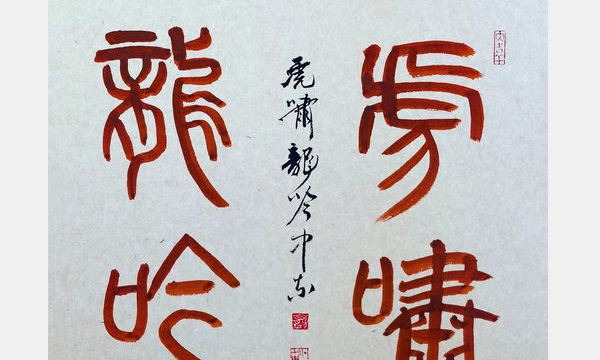 虎嘯
龍吟
虎嘯龍吟 中